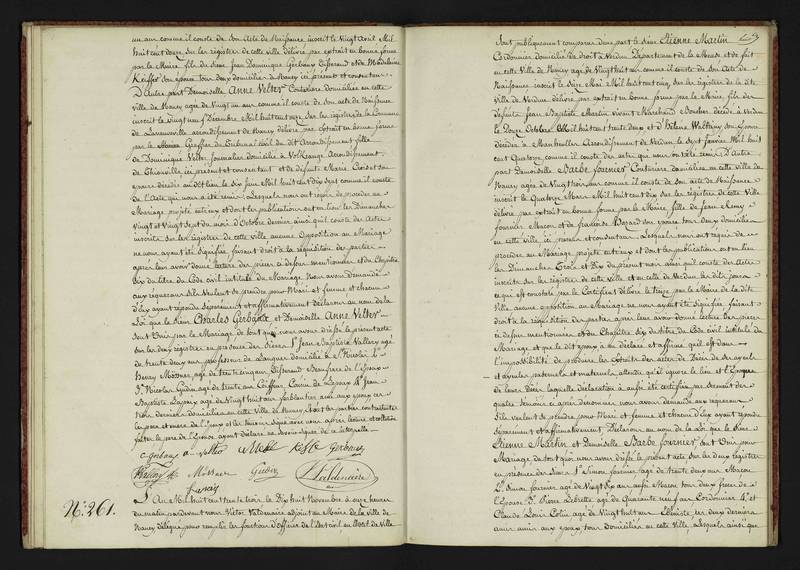 un an comme il conste de son Acte de Naissance inscrit le Vingt Avril Mil
huit cent douze sur les registres de cette ville délivré par extrait en bonne forme
par le Maire fils du sieur Jean Dominique Gerbaux Tisserand et de Madeleine
son épouse tous deux domiciliés à Nancy ici présents et consentans
D'autre part Demoiselle Anne Velter Couturière domiciliée en cette
ville de Nancy âgée de Vingt un ans comme il conste de son acte de Naissance
inscrit le Vingt neuf Décembre Mil huit cent onze sur les registres de la Commune
de arrondissement de Nancy délivré par Extrait en bonne forme
par le Greffier du Tribunal civil du dit Arrondissement fille
de Dominique Velter Journalier domicilié à Volkrange Arrondissement
de Thionville, ici présent et consentant et de défunte Marie son
épouse décédée au dit lieu le dix Juin Mil huit cent dix sept comme il conste
de l'Acte qui nous a été remis. Lesquels nous ont requis de procéder au
Mariage projeté entre eux et dont les publications ont eu lieu les Dimanches
Vingt et Vingt sept du mois d'Octobre dernier ainsi qu'il conste des Actes
inscrits sur les registres de cette ville aucune opposition au Mariage
ne nous ayant été signifiée faisant droit à la réquisition des parties
après leur avoir donné lecture des pièces ci dessus mentionnées et du Chapitre
Six du titre du Code civil intitulé du Mariage Nous avons demandé
aux requérans s'ils veulent se prendre pour Mari et femme et chacun
d'eux ayant répondu séparément et affirmativement déclarons au nom de la
Loi que le sieur Charles Gerbaux et Demoiselle Anne Velter
sont Unis par le Mariage de tout quoi nous avons dressé le présent acte
sur les deux registres en présence des sieurs 1° Jean Baptiste Vallary âgé
de trente deux ans professeur de Langues domicilié à St Nicolas 2°
Henry Mössner âgé de trente cinq ans Tisserand Beau frère de l'Epoux
3° Nicolas Gudin âgé de trente six ans Coiffeur Cousin de Lapaix 4° Jean
Baptiste Lapaix âgé de Vingt huit ans ferblantier ami aux époux ces
trois derniers domiciliés en cette ville de Nancy Et ont les parties contractantes
les père et mère de l'Epoux et les témoins signé avec nous après lecture
le père de l'Epouse ayant déclaré ne savoir signer de ce interpellé
C. Gerbaux A. Velter Gerbaux
Mössner
Lapaix Valdenaire
N° 261.
L'An Mil huit cent trente trois le Dix huit Novembre à onze heures
du matin pardevant nous Victor Valdenaire adjoint au Maire de la Ville de
Nancy délégué pour remplir les fonctions d'officier de l'Etat civil en l'hôtel de Ville
Sont publiquement comparus d'une part le sieur Etienne Martin
Cordonnier domicilié de droit à Verdun Département de la Meuse et de fait
en cette Ville de Nancy âgé de Vingt huit ans comme il conste de son Acte de
Naissance inscrit le Seize Mai Mil huit cent cinq sur les registres de la dite
Ville de Verdun délivré par extrait en bonne forme par le Maire, fils des
défunts Jean Baptiste Martin vivant Marchand Boucher décédé à Verdun
le Douze Octobre Mil huit cent trente deux et d'Hélène Waltrin son épouse
décédée à Arrondissement de Verdun, le Sept Janvier Mil huit
cent Quatorze, comme il conste des actes qui nous ont été remis D'autre
part Demoiselle Barbe fournier Couturière domiciliée en cette ville de
Nancy âgée de Vingt trois ans comme il conste de son acte de Naissance
inscrit le Quatorze Mars Mil huit cent dix sur les registres de cette Ville
délivré par extrait en bonne forme par le Maire, fille de Jean Remy
fournier Macon et de françoise Bazard son épouse tous deux domiciliés
en cette ville, ci présents et consentans. Lesquels nous ont requis de
procéder au Mariage projeté entre eux et dont les publications ont eu lieu
les Dimanches Trois et Dix du présent mois ainsi qu'il conste des Actes
inscrits sur les registres de cette Ville et en celle de Verdun les dits jours
ce qui est constaté par le Certificat délivré le treize par le Maire de la dite
Ville aucune opposition au Mariage ne nous ayant été signifiée faisant
droit à la requisition des parties après leur avoir donné lecture des pièces
ci dessus mentionnées et du Chapitre Six du titre du Code civil intitulé du
Mariage et que le dit époux a déclaré et affirmé qu'il est dans
l'impossibilité de produire les Extraits des actes de Décès de ses ayeuls
et ayeules paternels et maternels attendu qu'il ignore le lieu et l'Epoque
de leurs Décès laquelle déclaration a aussi été certifiée par serment des
quatre témoins ci après dénommés nous avons demandé aux requérans
s'ils veulent se prendre pour Mari et femme et chacun d'eux ayant répondu
séparément et affirmativement, Déclarons au nom de la Loi que le sieur
Etienne Martin et Demoiselle Barbe fournier, sont Unis par
Mariage, de tout quoi nous avons dressé le présent acte sur les deux registres
en présence des Sieurs 1° Simon fournier âgé de trente deux ans Macon
2° Simon fournier âgé de Vingt six ans aussi Macon tous deux frères de
l'Epouse 3° Pierre Lebrette âgé de Quarante neuf ans Cordonnier 4° et
Claude Louis Colin âgé de Vingt huit ans Ebéniste ces deux derniers
amis aux époux tous domiciliés en cette Ville, Lesquels ainsi que